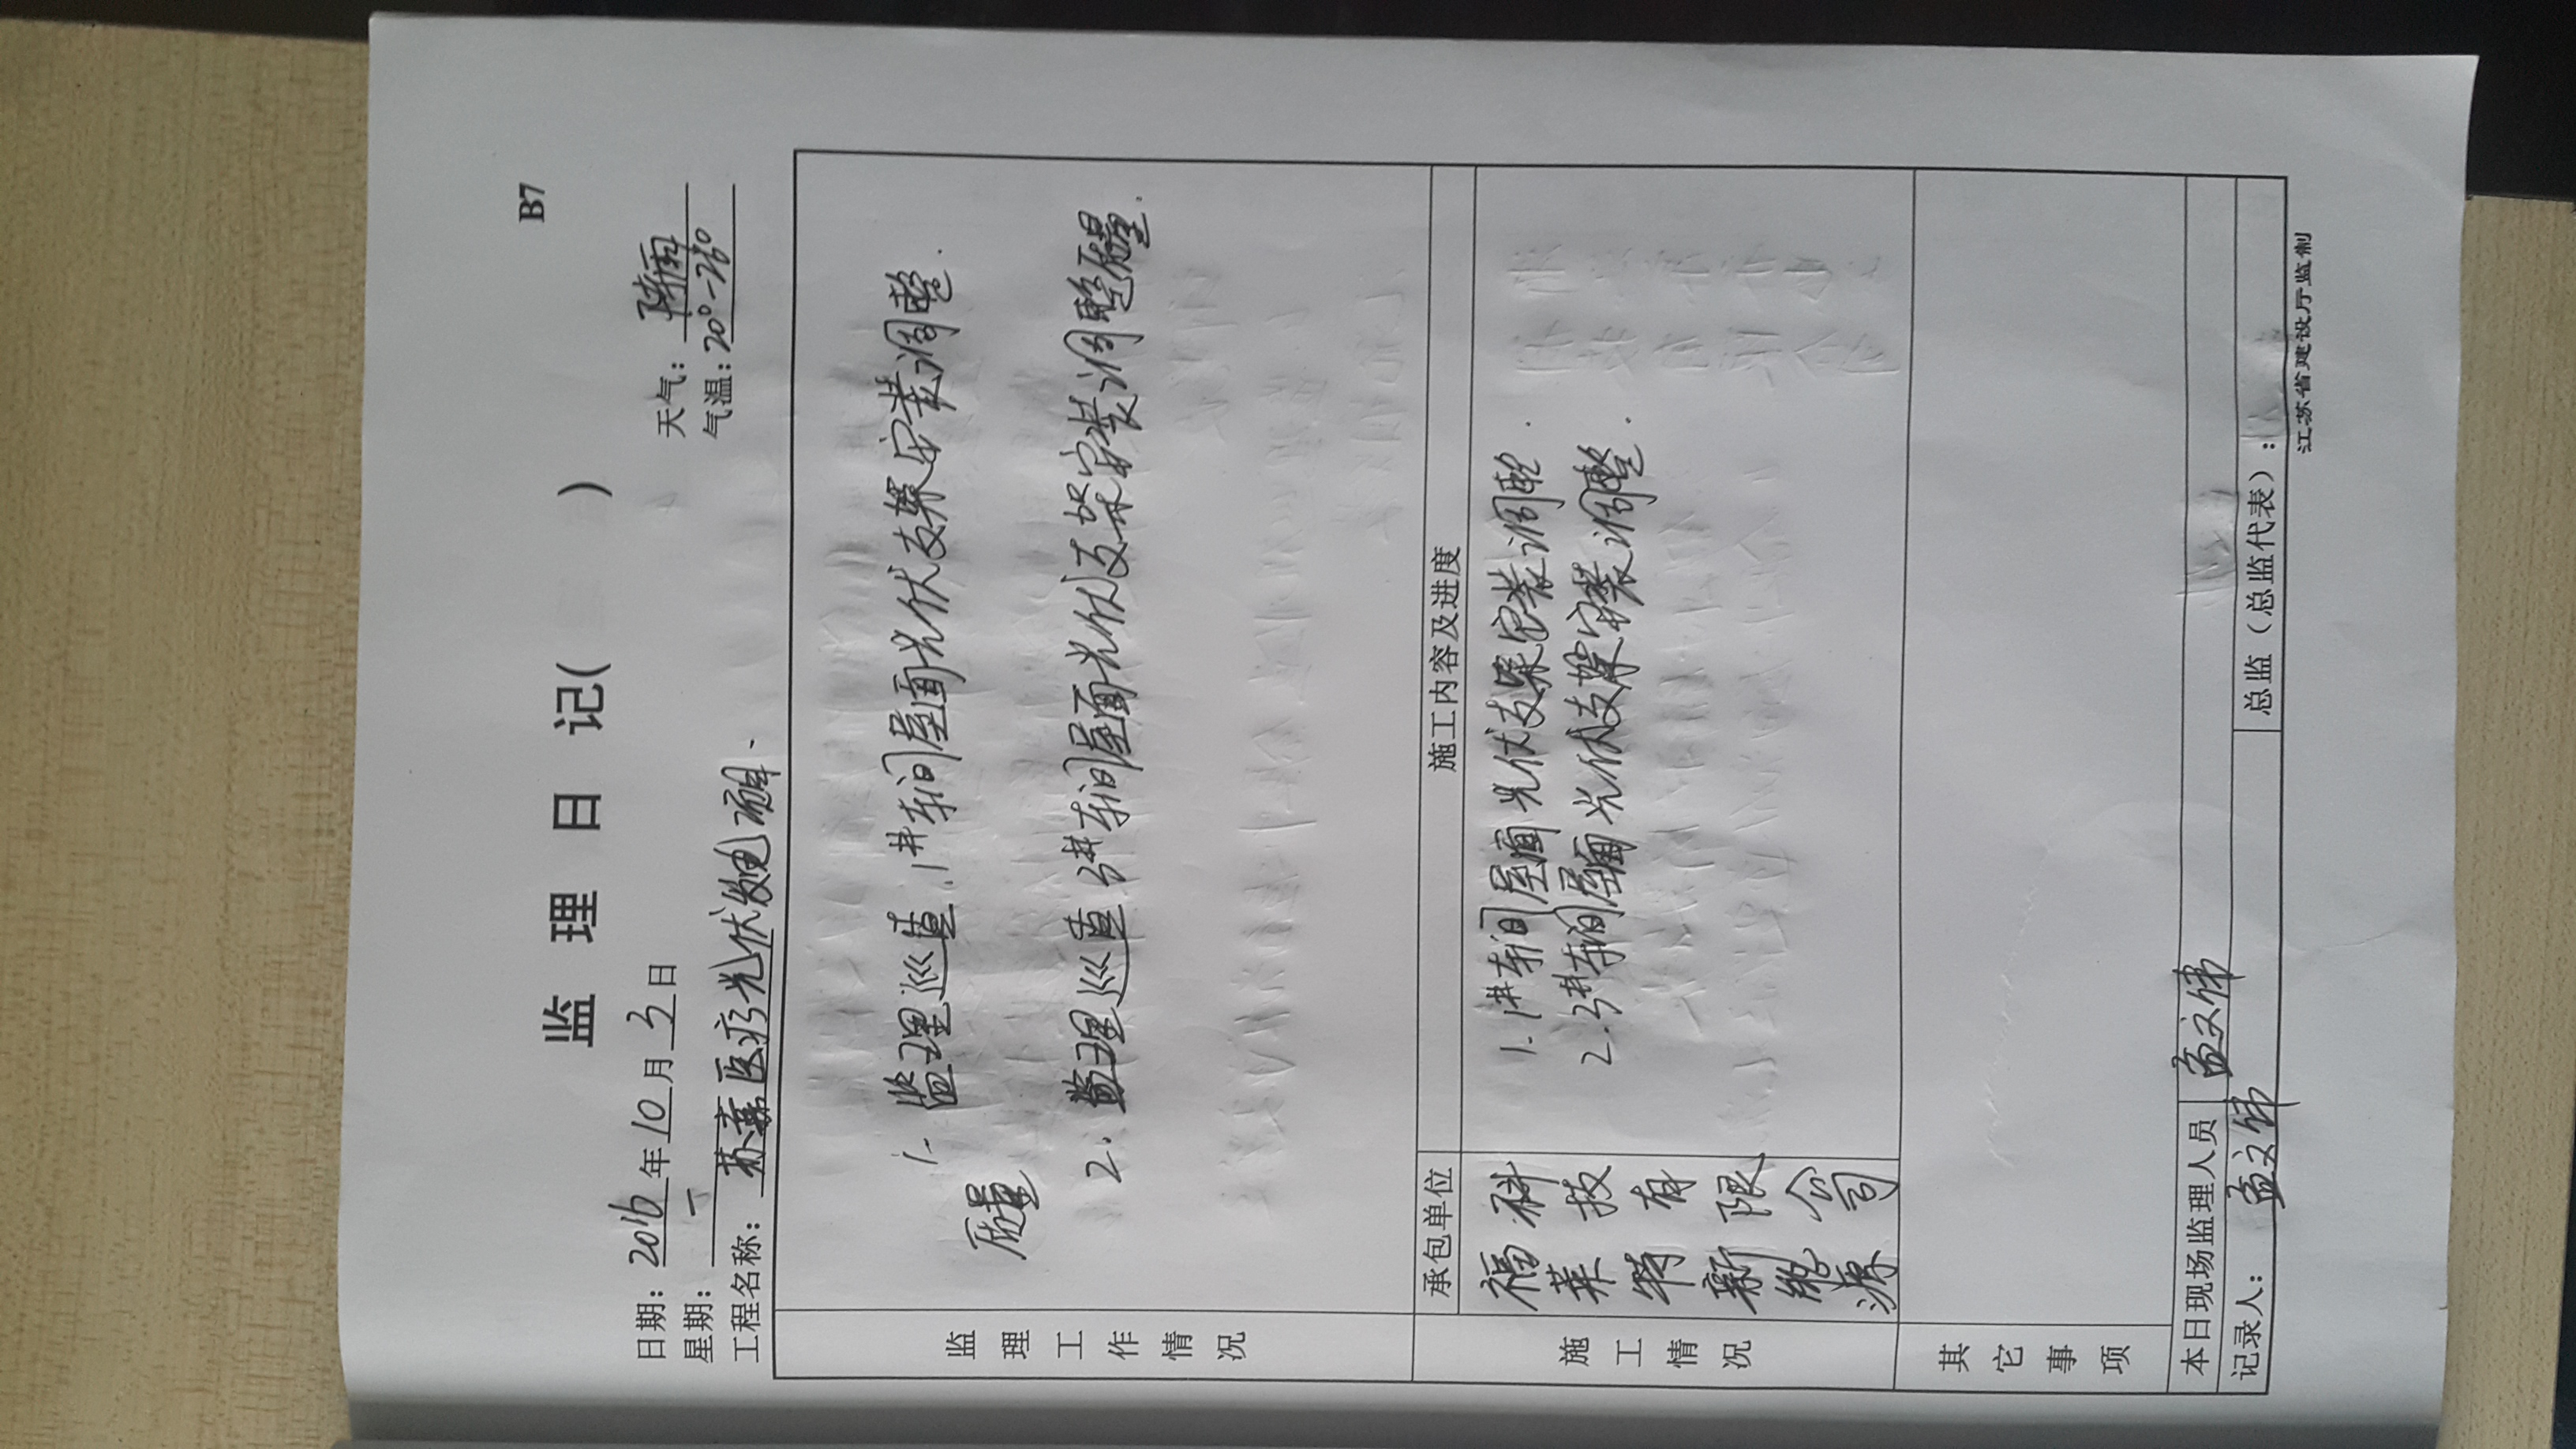 B7
监 理 日 记( )
日期：2016年10月3日 天气：阵雨
星期：一 气温：20°-28°
工程名称：苏嘉医疗光伏发电项目、
监理工作情况
1、监理巡查.1#车间屋面光伏支架安装调整.
质量
2、监理巡查3#车间屋面光伏支架安装调整质量.
施工情况
承包单位 施工内容及进度
福莱特新能源科技有限公司
1、1#车间屋面光伏支架安装调整.
2.3#车间屋面光伏支架安装调整.
其它事项
本日现场监理人员 孟文伟
记录人：孟文伟 总监（总监代表）：
江苏省建设厅监制